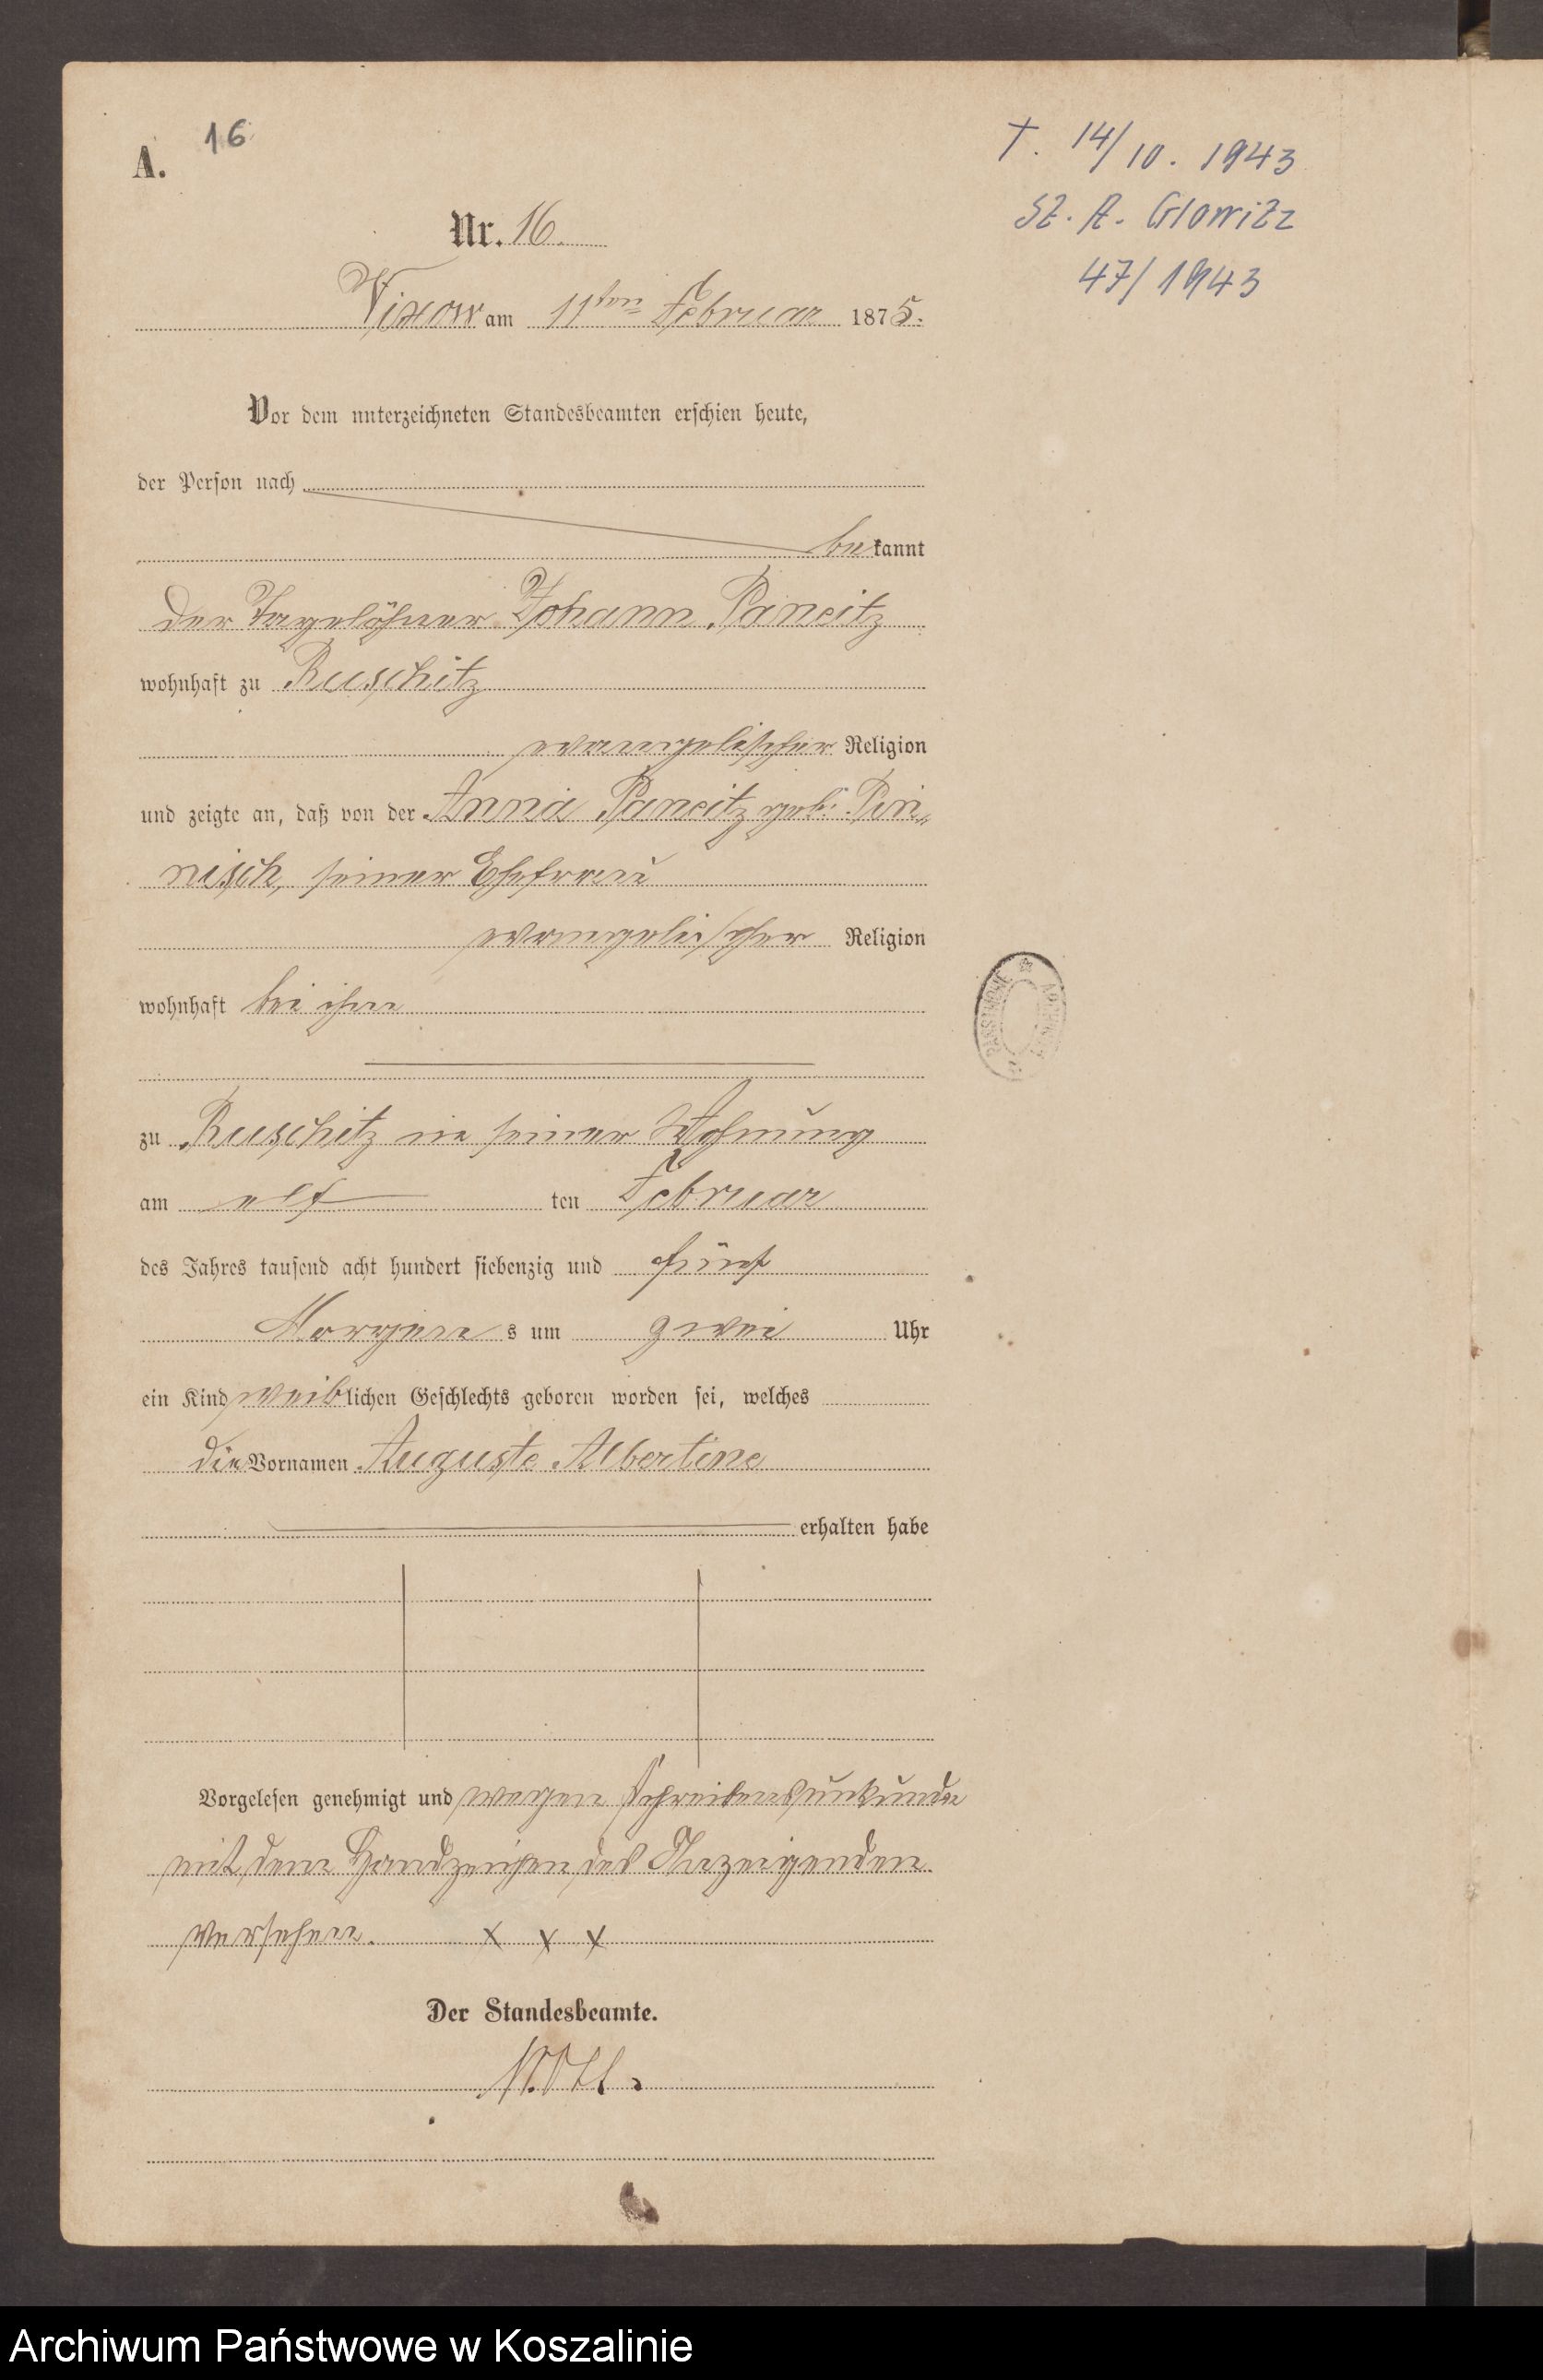 A.
16
T. 14/10. 1943
St. A. Glowitz
47/1943
Nr. 16.
Vixow am 11ten Februar 1875.
Vor dem unterzeichneten Standesbeamten erschien heute,
der Person nach
bekannt
der Tagelöhner Johann Panzitz
wohnhaft zu Ruschitz
evangelischer Religion
und zeigte an, daß von der Anna Panzitz geb. Pin„
nisch, seiner Ehefrau
evangelischer Religion
wohnhaft bei ihm
zu Ruschitz in seiner Wohnung
am elf ten Februar
des Jahres tausend acht hundert siebenzig und fünf
Morgens um zwei Uhr
ein Kind weiblichen Geschlechts geboren worden sei, welches
die Vornamen Auguste Albertine
erhalten habe
Vorgelesen genehmigt und wegen Schreibensunkunde
mit dem Handzeichen des Anzeigenden
versehen. x x x
Der Standesbeamte.
PAŃSTWOWE ARCHIWUM
Archiwum Państwowe w Koszalinie